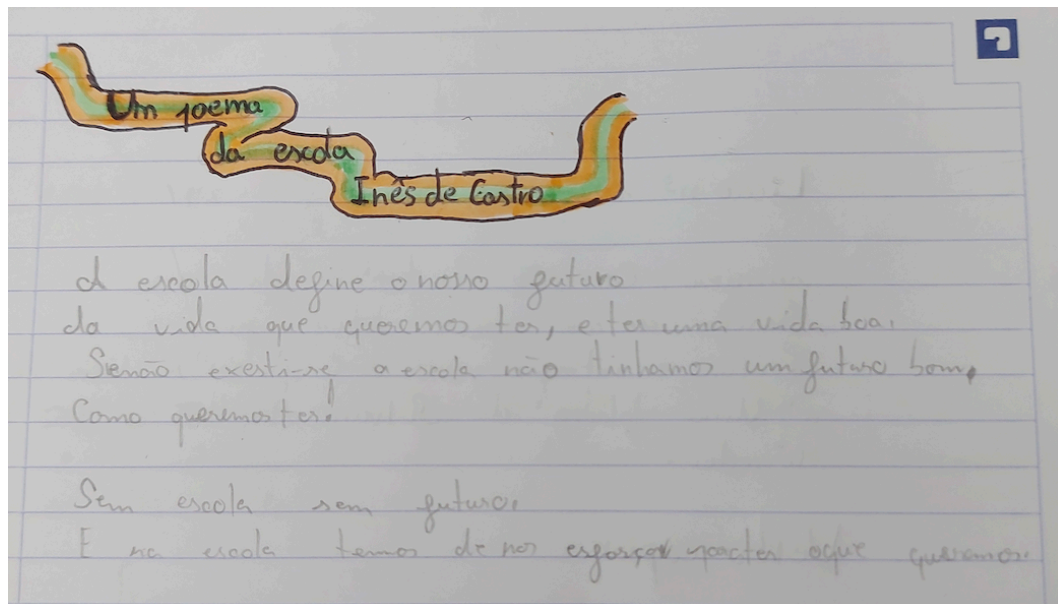 Um poema
da escola
Inês de Castro
A escola define o nosso futuro
da vida que queremos ter, e ter uma vida boa.
Senão exesti-se a escola não tinhamos um futuro bom,
Como queremos ter!
Sem escola sem futuro.
E na escola temos de nos esforçar oque queremos.